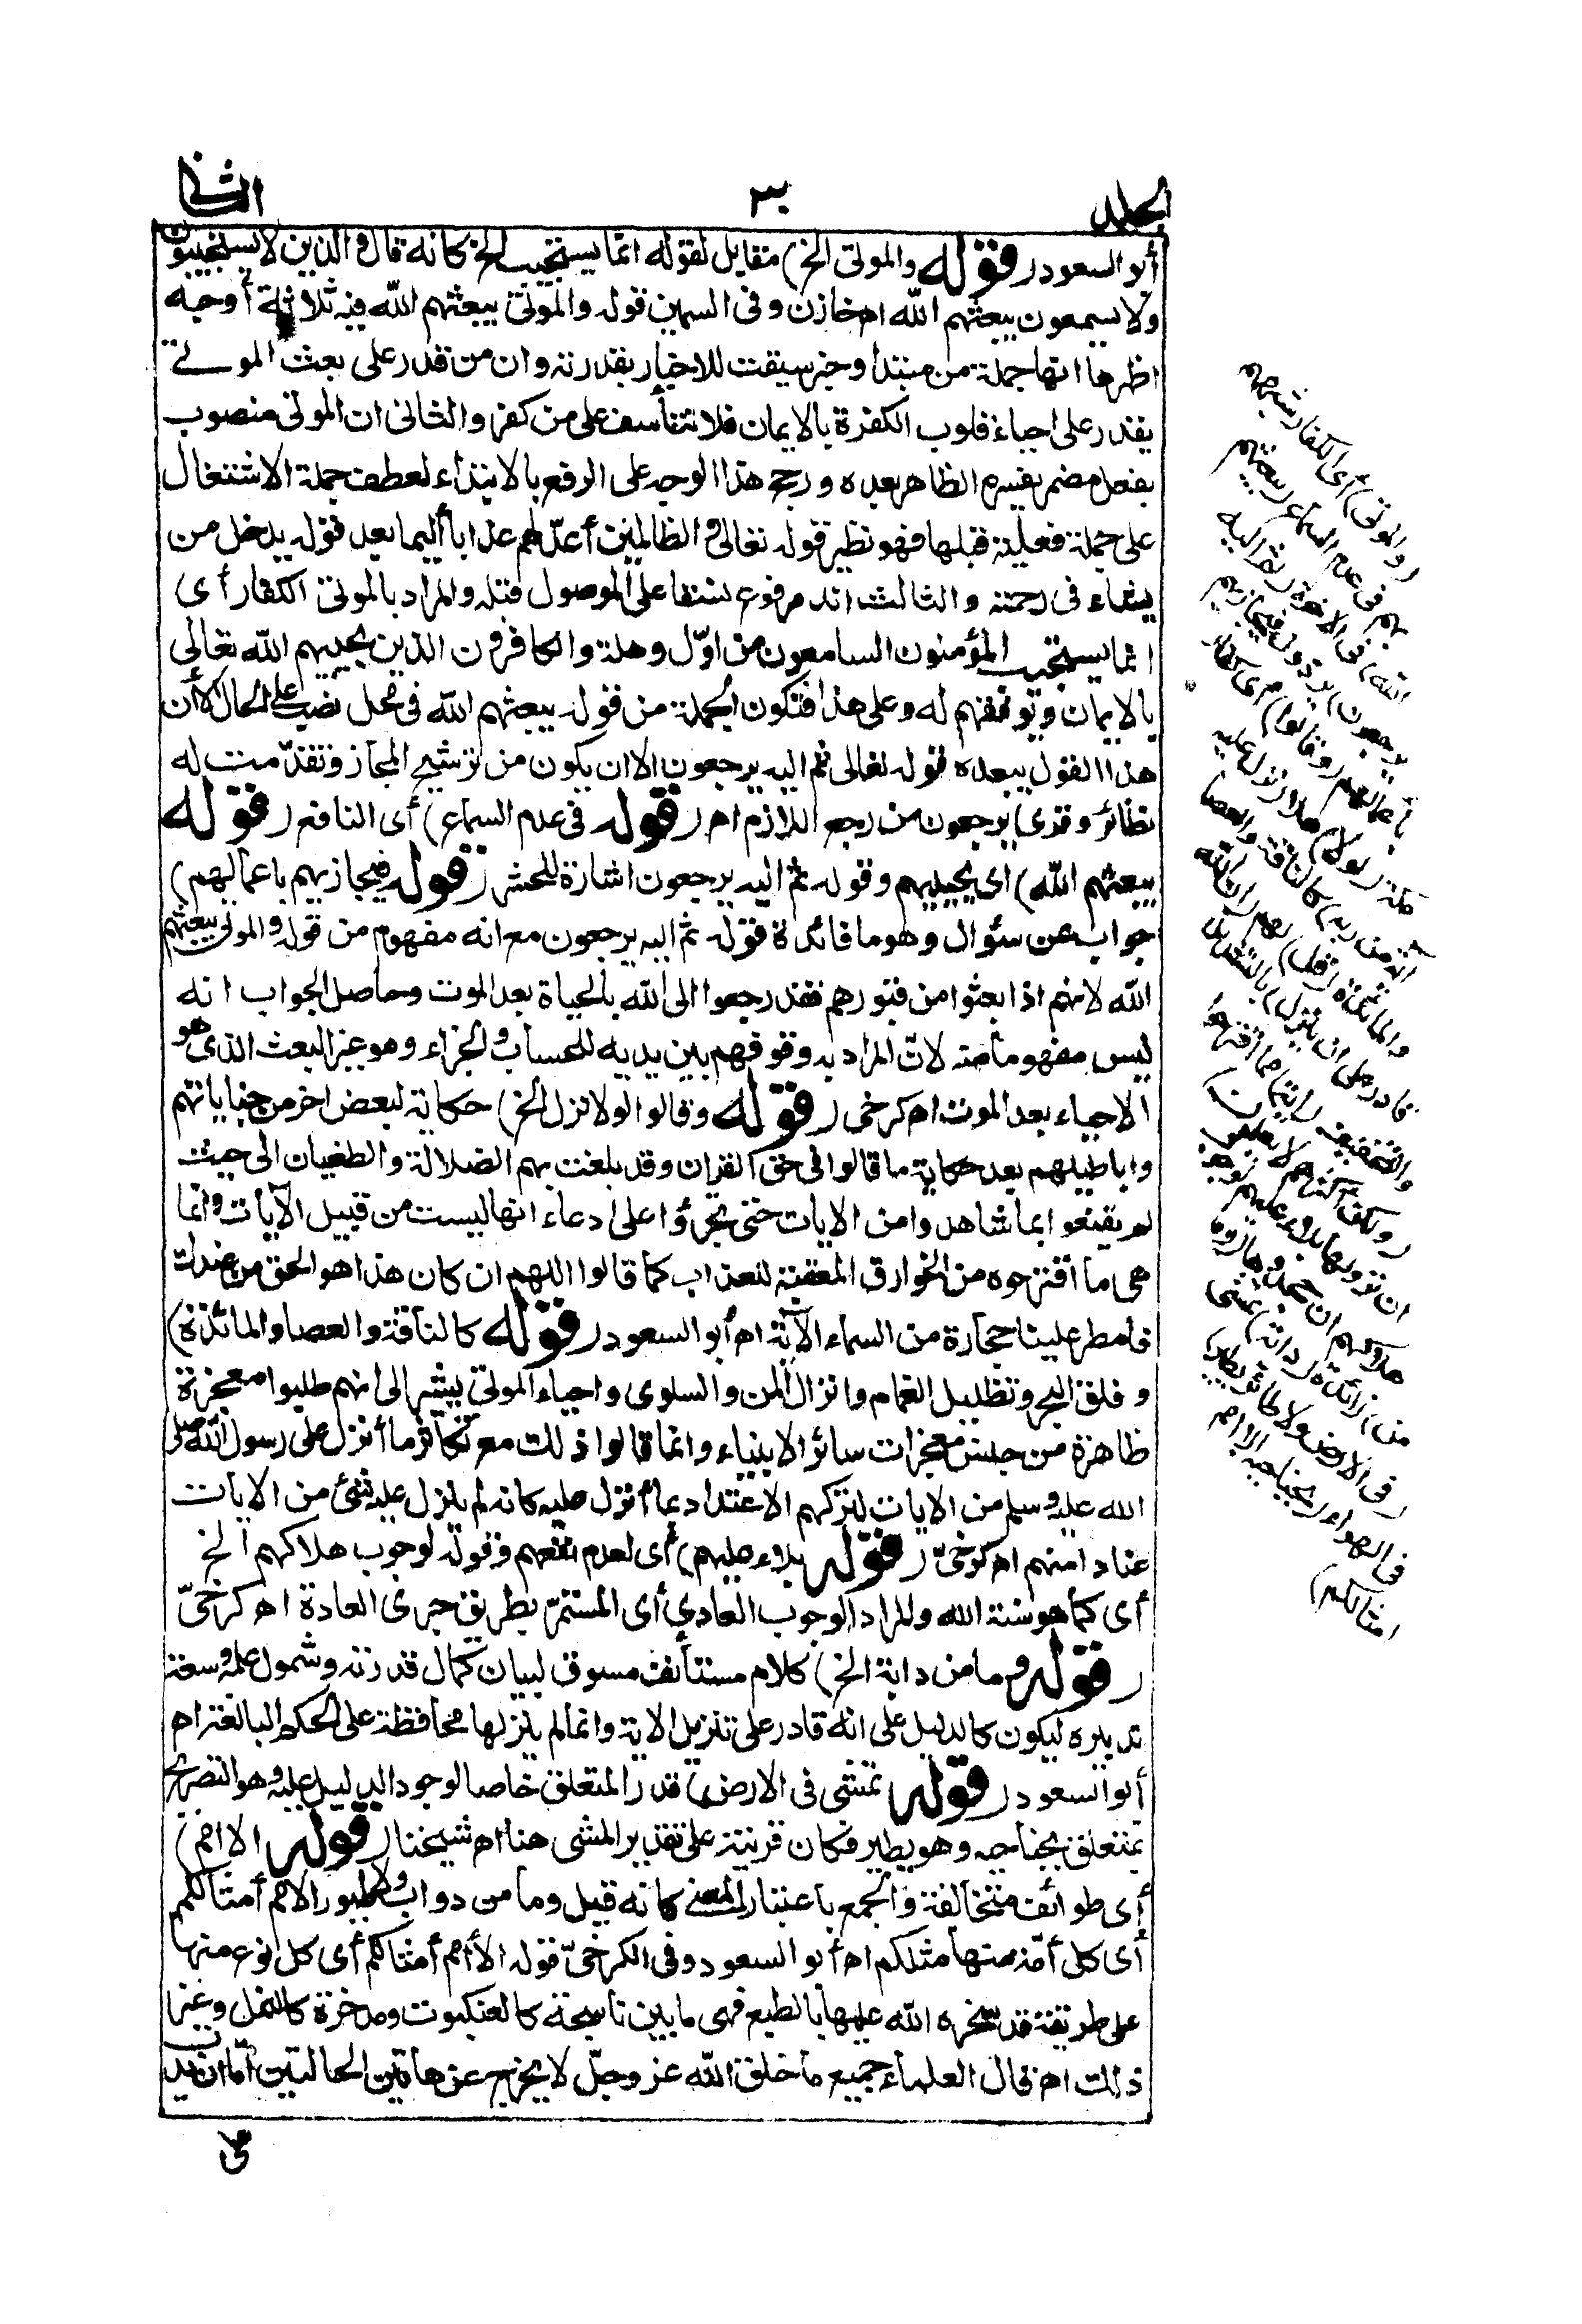 الجلد
٣٠
الثانى
أبو السعود (قوله والموتى الخ) مقابل لقوله انما يستجيب الخ كانه قال والذين لا يستجيبون
ولا يسمعون يبعثهم الله اه خازن وفى السمين قوله والموتى يبعثهم الله فيه ثلاثة أوجه
اظهرها انها جملة من مبتدأ وخبر سيقت للاخبار بقدرته وان من قدر على بعث الموتى
يقدر على احياء قلوب الكفرة بالايمان فلا تتأسف على من كفر والثانى ان الموتى منصوب
بفعل مضمر يفسره الظاهر بعده ورجح هذا الوجه على الرفع بالابتداء لعطف جملة الاشتغال
على جملة فعلية قبلها فهو نظير قوله تعالى والظالمين أعدّ لهم عذابا أليما بعد قوله يدخل من
يشاء فى رحمته والثالث انه مرفوع نسقا على الموصول قبله والمراد بالموتى الكفار أى
انما يستجيب المؤمنون السامعون من اوّل وهلة والكافرون الذين يحييهم الله تعالى
بالايمان ويوفقهم له وعلى هذا فتكون الجملة من قوله يبعثهم الله فى محل نصب على الحال الا أن
هذا القول يبعده قوله تعالى ثم اليه يرجعون الا ان يكون من ترشيح المجاز وتقدّمت له
نظائر وقرئ يرجعون من رجع اللازم اه (قوله فى عدم السماع) أى النافع (قوله
يبعثهم الله) اى يحييهم وقوله ثم اليه يرجعون اشارة للحشر (قوله فيجازيهم باعمالهم)
جواب عن سؤال وهو ما فائدة قوله ثم اليه يرجعون مع انه مفهوم من قوله والموتى يبعثهم
الله لانهم اذا بعثوا من قبورهم فقد رجعوا الى الله بالحياة بعد الموت وحاصل الجواب انه
ليس مفهوما منه لانّ المراد به وقوفهم بين يديه للحساب والجزاء وهو غير البعث الذى هو
الاحياء بعد الموت اه كرخى (قوله وقالوا لولا نزل الخ) حكاية لبعض اخر من جناياتهم
واباطيلهم بعد حكاية ما قالوا فى حق القران وقد بلغت بهم الضلالة والطغيان الى حيث
لم يقنعوا بما شاهدوا من الايات حتى تجرؤا على ادعاء انها ليست من قبيل الآيات وانما
هى ما اقترحوه من الخوارق المعقبة للعذاب كما قالوا اللهم ان كان هذا هو الحق من عندك
فامطر علينا حجارة من السماء الآية اه أبو السعود (قوله كالناقة والعصا والمائدة)
وفلق البحر وتظليل الغمام وانزال المن والسلوى واحياء الموتى يشير الى انهم طلبوا معجزة
ظاهرة من جنس معجزات سائر الانبياء وانما قالوا ذلك مع تكاثر ما أنزل على رسول الله صلى
الله عليه وسلم من الايات لتركهم الاعتداد بما أنزل عليه كانه لم ينزل عليه شئ من الايات
عنادا منهم اه كرخىّ (قوله بلاء عليهم) أى لعدم نفعهم وقوله لوجوب هلاكهم الخ
أى كما هو سنة الله والمراد الوجوب العادى أى المستمرّ بطريق جرى العادة اه كرخىّ
(قوله وما من دابة الخ) كلام مستأنف مسوق لبيان كمال قدرته وشمول علمه وسعة
تدبيره ليكون كالدليل على انه قادر على تنزيل الاية وانما لم ينزلها محافظة على الحكم البالغة اه
أبو السعود (قوله تمشى فى الارض) قدر المتعلق خاصا لوجود الدليل عليه وهو التصريح
بمتعلق بجناحيه وهو يطير فكان قرينة على تقدير المشى هنا اه شيخنا (قوله الا امم)
أى طوائف متخالفة والجمع باعتبار المعنى كانه قيل وما من دواب ولا طيور الا امم أمثالكم
أى كل أمّة منها مثلكم اه أبو السعود وفى الكرخىّ قوله الا أمم أمثالكم أى كل نوع منها
على طريقة قد سخره الله عليها بالطبع فهى ما بين ناسجة كالعنكبوت ومدخرة كالنمل وغير
ذلك اه قال العلماء جميع ما خلق الله عز وجلّ لا يخرج عن هاتين الحالتين امّا ان يد
(والموتى) أى الكفار شبههم
بهم فى عدم السماع (يبعثهم
الله) فى الآخرة (ثم اليه
يرجعون) يردون فيجازيهم
بأعمالهم (وقالوا) أى كفار
مكة (لولا) هلا (نزل عليه
آية من ربه) كالناقة والعصا
والمائدة (قل) لهم (ان الله
قادر على ان ينزل) بالتشديد
والتخفيف (آية) مما اقترحوا
(ولكن أكثرهم لا يعلمون)
ان نزولها بلاء عليهم لوجوب
هلاكهم ان جحدوها (وما
من) زائدة (دابة) تمشى
(فى الارض ولا طائر يطير)
فى الهواء (بجناحيه الا امم
امثالكم)